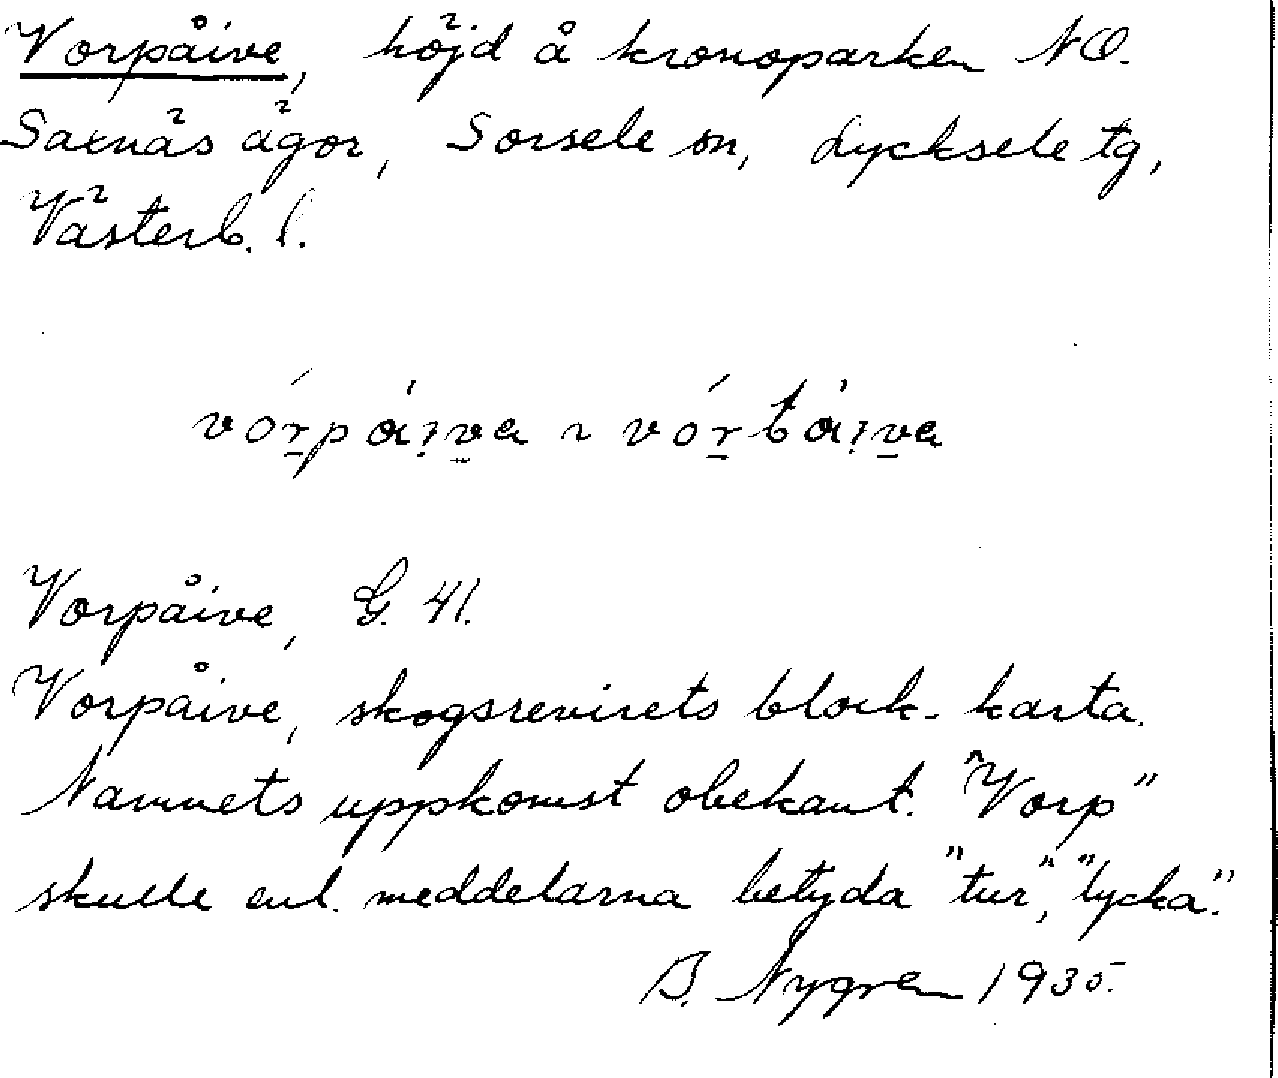 Vorpåive, höjd å kronoparken NO.
Saxnäs ägor, Sorsele sn, Lycksele tg,
Västerb. l.
vórpái̯va ~ vórbái̯va
Vorpåive, G. 41.
Vorpåive, skogsrevirets block-karta.
Namnets uppkomst obekant. "Vorp"
skulle enl. meddelarna betyda "tur", "lycka".
B. Nygren 1935.